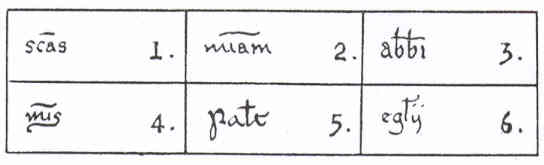 sc̄as 1. nūam 2. abbı 3.
m̄s 4. pate 5. egtÿ 6.